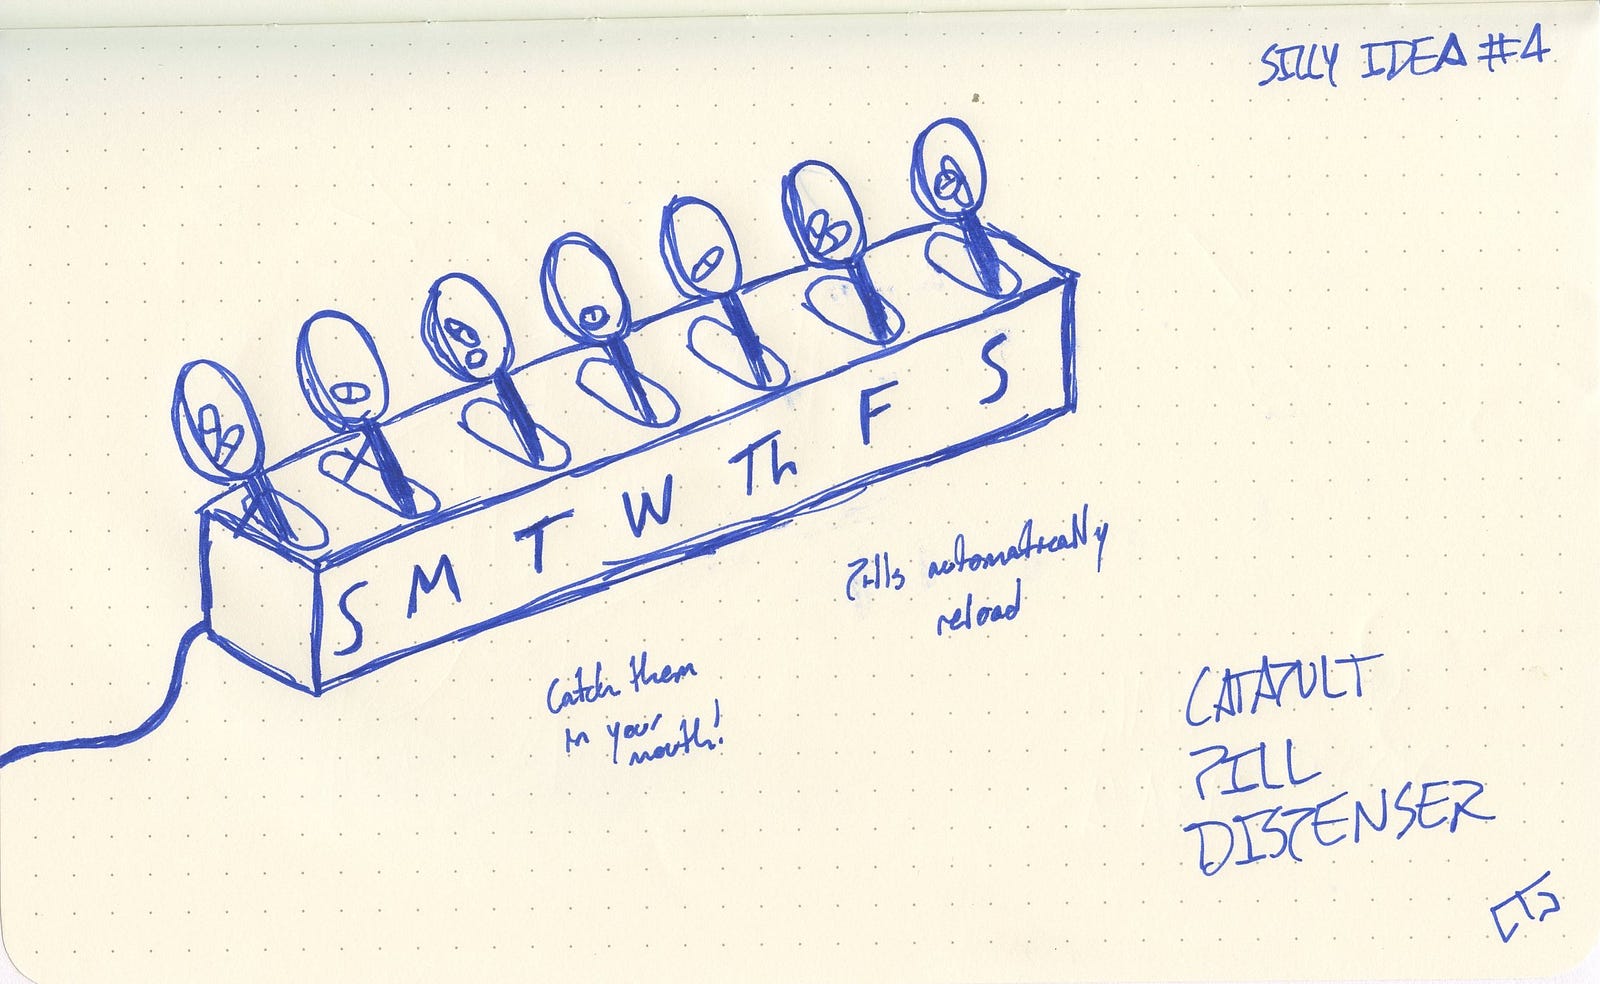 SILLY IDEA #4
S M T W Th F S
Pills automatically
reload
Catch them
in your
mouth!
CATAPULT
PILL
DISPENSER